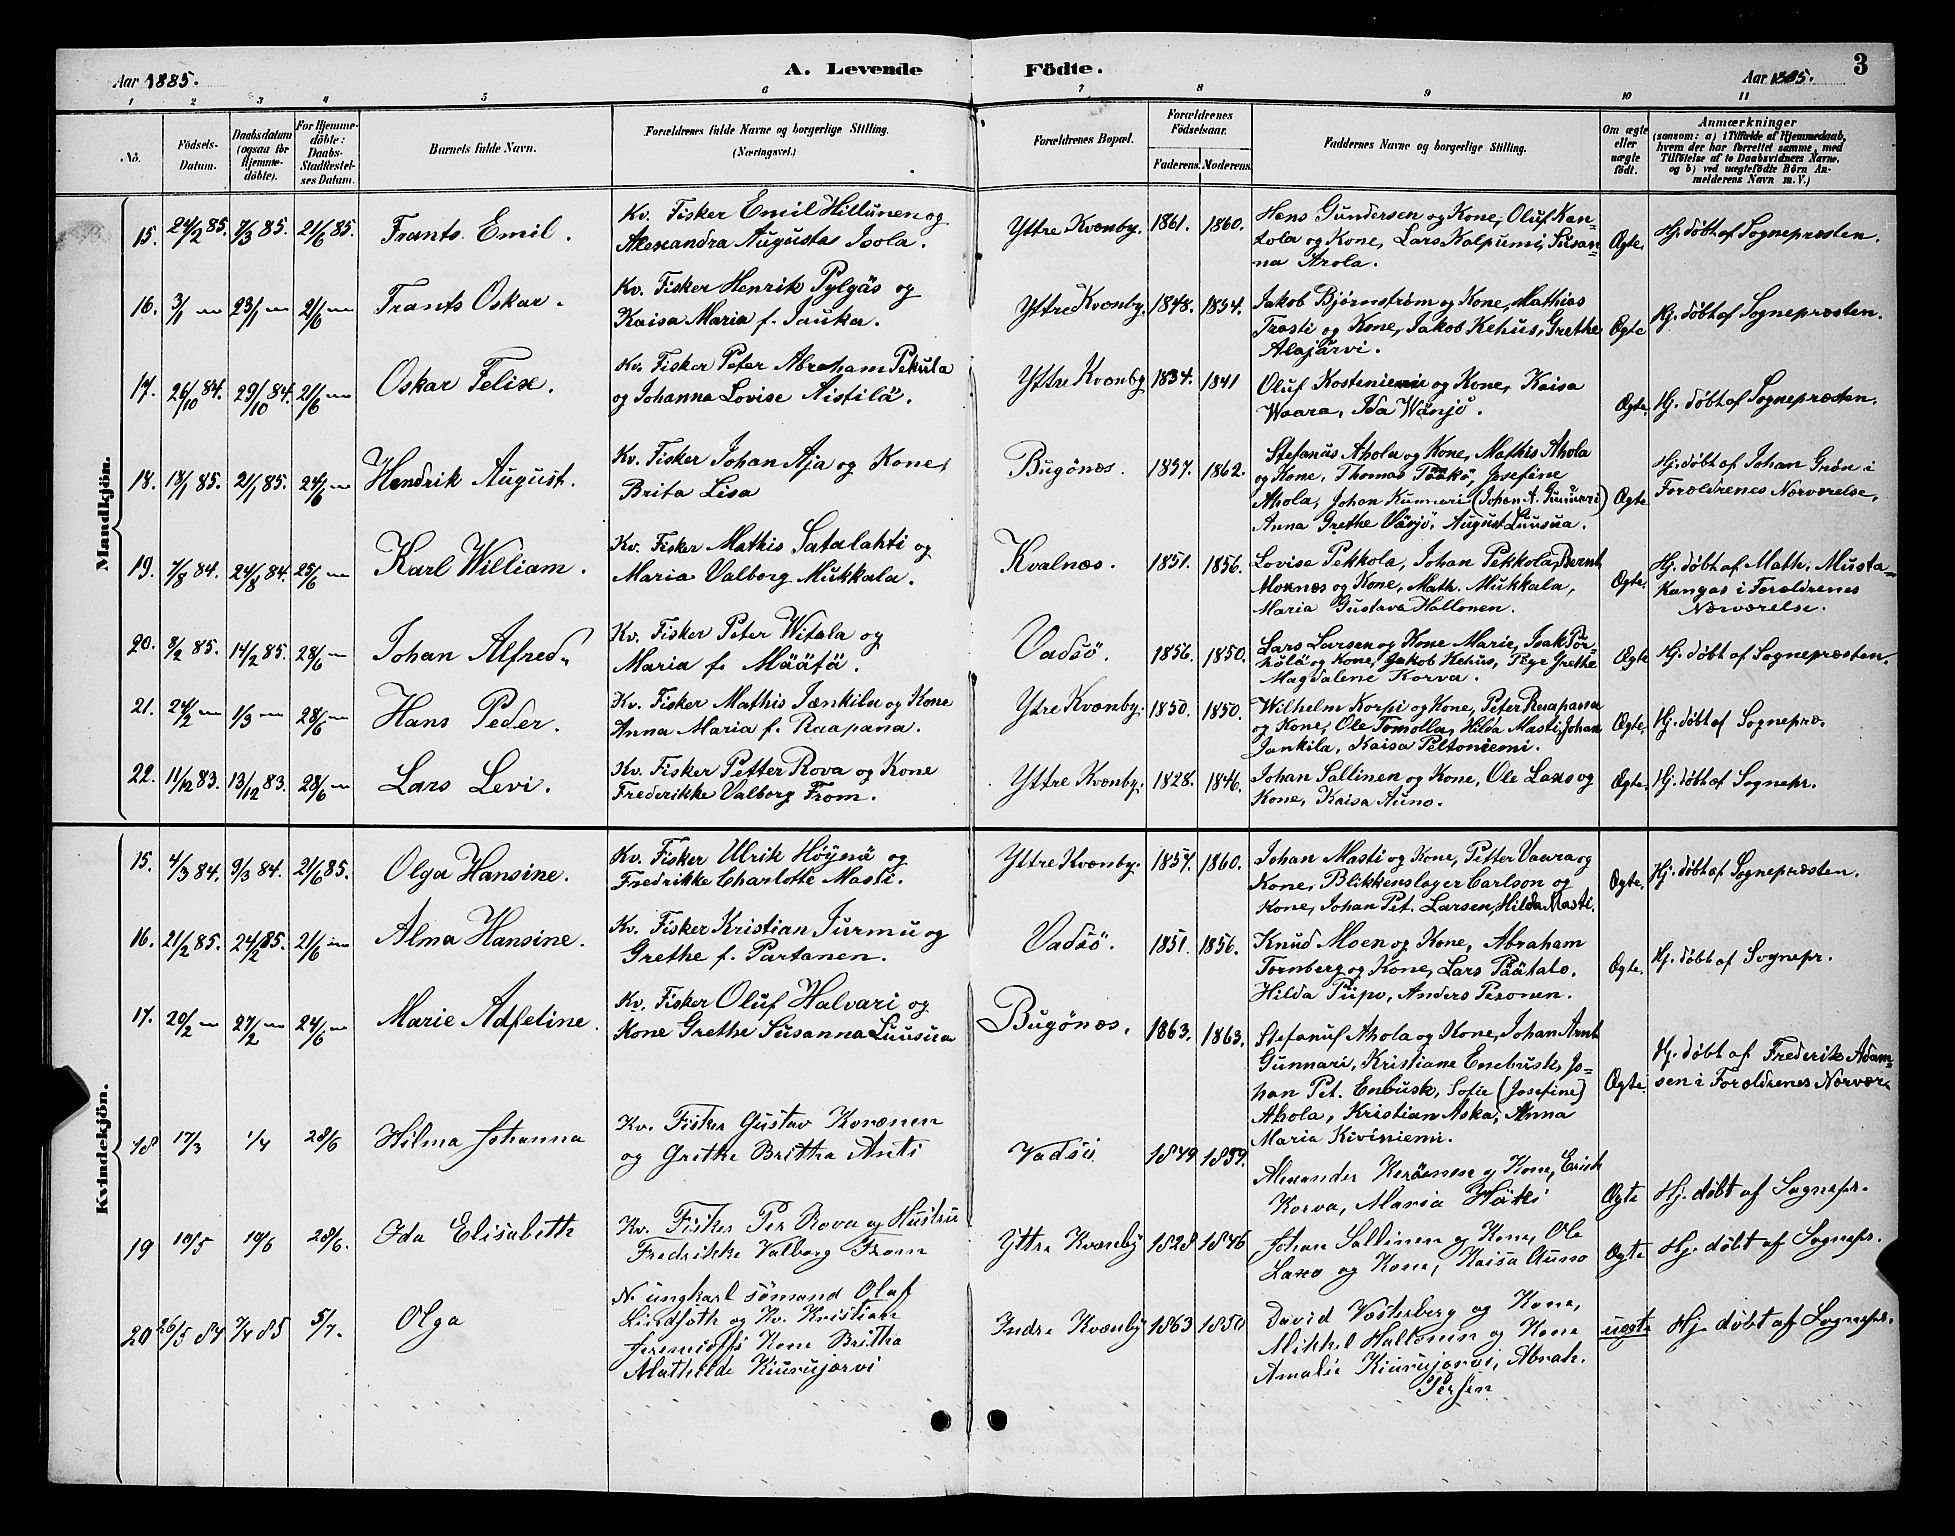 Aar 1885.
A. Levende
Födte.
3
Aar 1885.
1 2 3 4 5 6 7 8 9 10 11
No.
Födsels-
Datum.
Daabsdatum
(ogsaa for
Hjemme-
döbte).
For Hjemme-
döbte:
Daabs-
Stadfæstel-
ses Datum.
Barnets fulde Navn.
Forældrenes fulde Navne og borgerlige Stilling.
(Næringsvei.)
Forældrenes Bopæl.
Forældrenes
Födselsaar.
Faderens. Moderens.
Faddernes Navne og borgerlige Stilling.
Om ægte
eller
uægte
födt.
Anmærkninger
(saasom: a) i Tilfælde af Hjemmedaab,
hvem der har forrettet samme, med
Tilföielse af to Daabsvidners Navne.
og b) ved uægtefödte Börn An-
melderens Navn m. V.)
Mandkjön.
15. 24/2 85. 7/3 85. 21/6 85. Frants Emil.
Kv. Fisker Emil Hillunen og
Alexandra Augusta Isola.
Yttre Kvænby. 1861. 1860.
Hans Gundersen og Kone, Oluf Kan-
tola og Kone, Lars Kalpumi, Susan-
na Arola.
Ægte Hj. døbt af Sognepræsten.
16. 3/1 " 23/1 " 21/6 " Frants Oskar.
Kv. Fisker Henrik Pylgäs og
Kaisa Maria f. Jauka.
Yttre Kvænby. 1848. 1854.
Jakob Bjørnstrøm og Kone, Mathias
Trasti og Kone, Jakob Kehus, Grethe
Alajärvi.
Ægte Hj. døbt af Sognepræsten.
17. 26/10 84. 29/10 84. 21/6 " Oskar Felix.
Kv. Fisker Peter Abraham Pekula
og Johanna Lovise Aistilä.
Yttre Kvænby 1834. 1841
Oluf Kosteniemi og Kone, Kaisa
Waara, Ida Wänjö.
Ægte. Hj. døbt af Sognepræsten.
18. 18/1 85. 21/1 85. 24/6 " Hendrik August.
Kv. Fisker Johan Aja og Kone,
Brita Lisa
Bugönæs. 1857. 1862.
Stefanus Ahola og Kone, Mathis Ahola
og Kone, Thomas Pääkö, Josefine
Ahola, Johan Kunnari (Johan A. Gunnari)
Anna Grethe Väsjö, August Luusua.
Ægte Hj. døbt af Johan Grøn i
Forældrenes Nærværelse,
19. 7/8 84. 24/8 84. 25/6 " Karl William.
Kv. Fisker Mathis Satalahti og
Maria Valborg Mukkala.
Kvalnæs. 1851. 1856.
Lovise Pekkola, Johan Pekkola, Bernt
Moxnæs og Kone, Math. Mukkala,
Maria Gustava Hallonen.
Ægte. Hj. døbt af Math. Musta-
kangas i Forældrenes
Nærværelse.
20. 8/2 85. 14/2 85. 28/6 " Johan Alfred.
Kv. Fisker Peter Witala og
Maria f. Määtä.
Vadsö. 1856. 1850.
Lars Larsen og Kone Marie, Isak Pör-
hölä og Kone, Jakob Kehus, Pige Grethe
Magdalene Korva.
Ægte Hj. døbt af Sognepræsten.
21. 24/2 " 1/3 " 28/6 " Hans Peder.
Kv. Fisker Mathis Jænkila og Kone
Anna Maria f. Raapana.
Ytre Kvænby. 1850. 1850.
Wilhelm Korpi og Kone, Peter Raapana
og Kone, Ole Tomolla, Hilda Masti, Johan
Jankila, Kaisa Peltoniemi.
Ægte, Hj. døbt af Sognepræ.
22. 11/12 83. 13/12 83. 28/6 " Lars Levi.
Kv. Fisker Petter Rova og Kone
Frederikke Valborg From.
Yttre Kvænby. 1828. 1846.
Johan Sallinen og Kone, Ole Laxo og
Kone, Kaisa Auno.
Ægte. Hj. døbt af Sognepr.
Kvindekjön.
15. 4/3 84. 9/3 84. 21/6 85. Olga Hansine.
Kv. Fisker Ulrik Höynä og
Fredrikke Charlotte Masti.
Yttre Kvænby. 1857. 1860.
Johan Masti og Kone, Petter Vaara og
Kone, Blikkenslager Carlson og
Kone, Johan Pet. Larsen, Hilda Masti.
Ægte. Hj. døbt af Sognepræsten.
16. 21/2 85. 24/2 85. 21/6 " Alma Hansine.
Kv. Fisker Kristian Jurmu og
Grethe f. Partanen.
Vadsö. 1851. 1856.
Knud Moen og Kone, Abraham
Tornberg og Kone, Lars Päätalo.
Hilda Piipo, Anders Pesonen.
Ægte. Hj. døbt af Sognepr.
17. 20/2 " 27/2 " 24/6 " Marie Adeline.
Kv. Fisker Oluf Halvari og
Kone Grethe Susanna Luusua
Bugönæs. 1863. 1863.
Stefanuf Ahola og Kone, Johan Arnt
Gunnari, Kristiane Enebusk, Jo-
han Pet. Enbusk, Sofie (Josefine)
Ahola, Kristian Aska, Anna
Maria Kiviniemi.
Ægte Hj. døbt af Frederik Adam-
sen i Forældrenes Nærvær.
18 17/3 1/4 28/6 Hilma Johanna
Kv. Fisker Gustav Korænen
og Grethe Britha Anti
Vadsö 1849 1859.
Alexander Keränen og Kone, Erich
Korva, Maria Häiki
Ægte Hj. døbt af Sognepr.
19 10/5 10/6 28/6. Ida Elisabeth
Kv. Fisker Per Rova og Hustru
Fredrikke Valborg From
Yttre Kvænby 1828 1846
Johan Sallinen og Kone, Ole
Laxo og Kone, Kaisa Auno
Ægte Hj. døbt af Sognepr.
20 26/5 84 7/4 85 5/7. Olga
N. ungkarl sömand Olaf
og Kv. Kristian
Jeremioffs Kone Britha
Mathilde Kiurujærvi
Indre Kvænby 1863 1850
David Vesterberg og Kone,
Mikkel Hallonen og Kone
Amalie Kiurujærvi, Abrah.
Persen
uægte Hj. døbt af Sognepr.